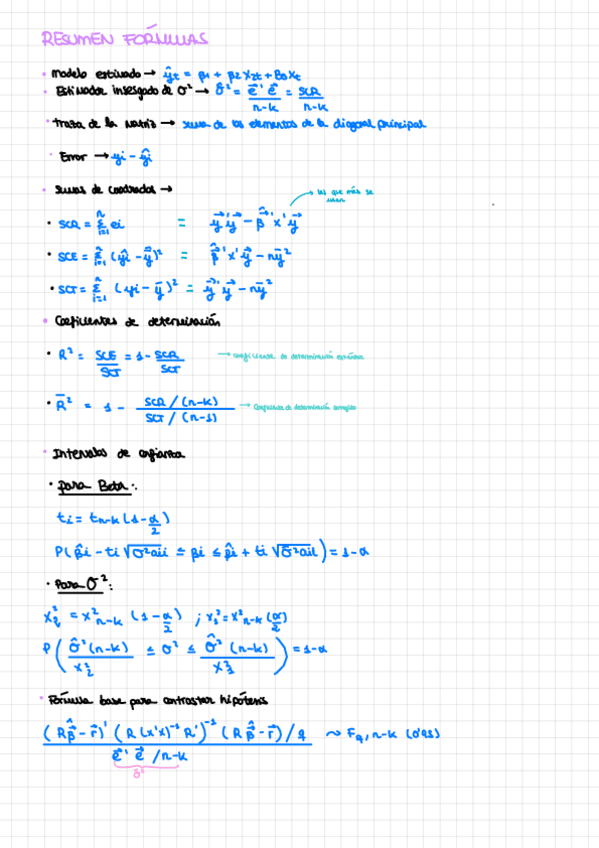 RESUMEN FÓRMULAS
• Modelo estimado → ŷt = β1 + β2 X2t + B3 Xt
• Estimador insesgado de σ² → σ̂² = e⃗' e⃗ / n-k = SCR / n-k
• Traza de la matriz → suma de los elementos de la diagonal principal
• Error → yi - ŷi
• Sumas de cuadrados → las que más se usan
• SCR = Σ(i=1, n) ei = y⃗' y⃗ - β̂⃗' x' y⃗
• SCE = Σ(i=1, n) (ŷi - ȳ)² = β̂⃗' x' y⃗ - nȳ²
• SCT = Σ(i=1, n) (yi - ȳ)² = y⃗' y⃗ - nȳ²
• Coeficientes de determinación
• R² = SCE / SCT = 1 - SCR / SCT → coeficiente de determinación
• R̄² = 1 - SCR / (n-k) / SCT / (n-1) → Coeficiente de determinación corregido
• Intervalos de confianza
• para Beta:
ti = tn-k (1 - α/2)
P(β̂i - ti √σ̂²aii ≤ βi ≤ β̂i + ti √σ̂²aii) = 1-α
• Para σ²:
x²₂ = x²n-k (1 - α/2) ; x₁² = x²n-k (α/2)
P( σ̂²(n-k) / x²₂ ≤ σ² ≤ σ̂²(n-k) / x²₁ ) = 1-α
• Fórmula base para contrastar hipótesis
(Rβ̂⃗ - r⃗)' (R(x'x)⁻¹ R')⁻¹ (Rβ̂⃗ - r⃗) / q ~ Fq, n-k (0'95)
e⃗' e⃗ / n-k
σ̂²